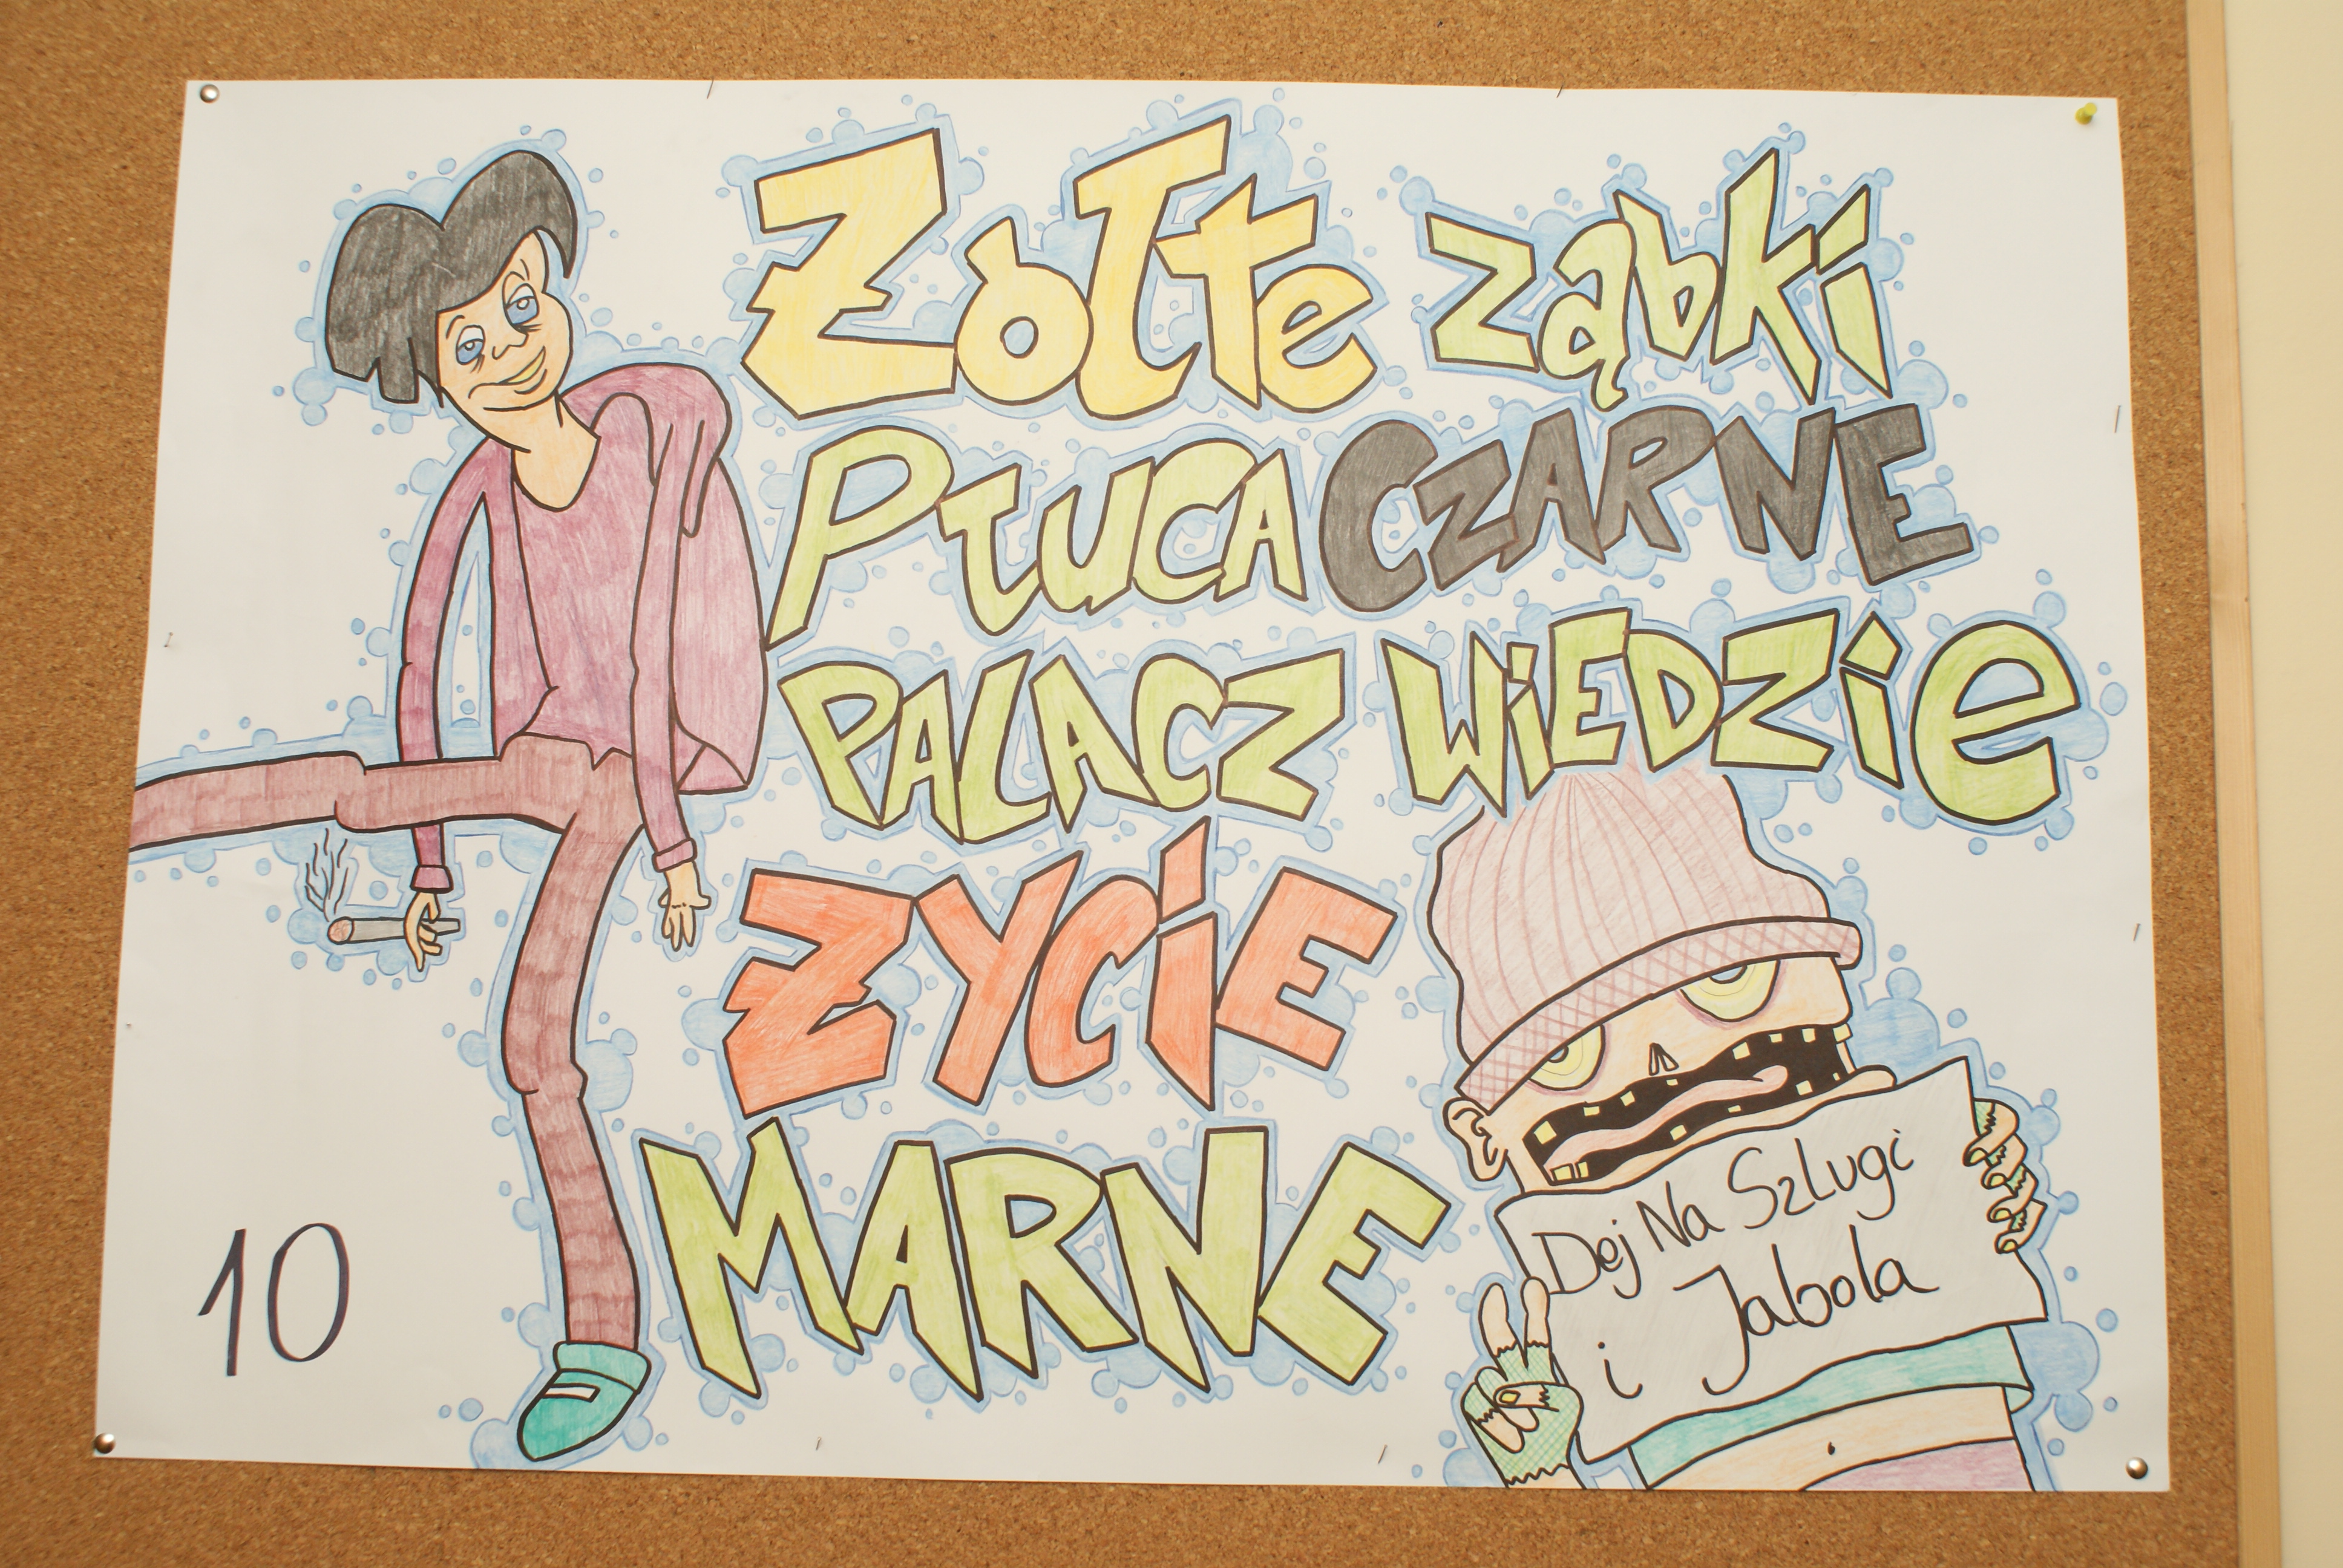 Żółte ząbki
Płuca CZARNE
PALACZ WiEDZie
ŻYCiE
MARNE
Dej Na Szlugi
i Jabola
10